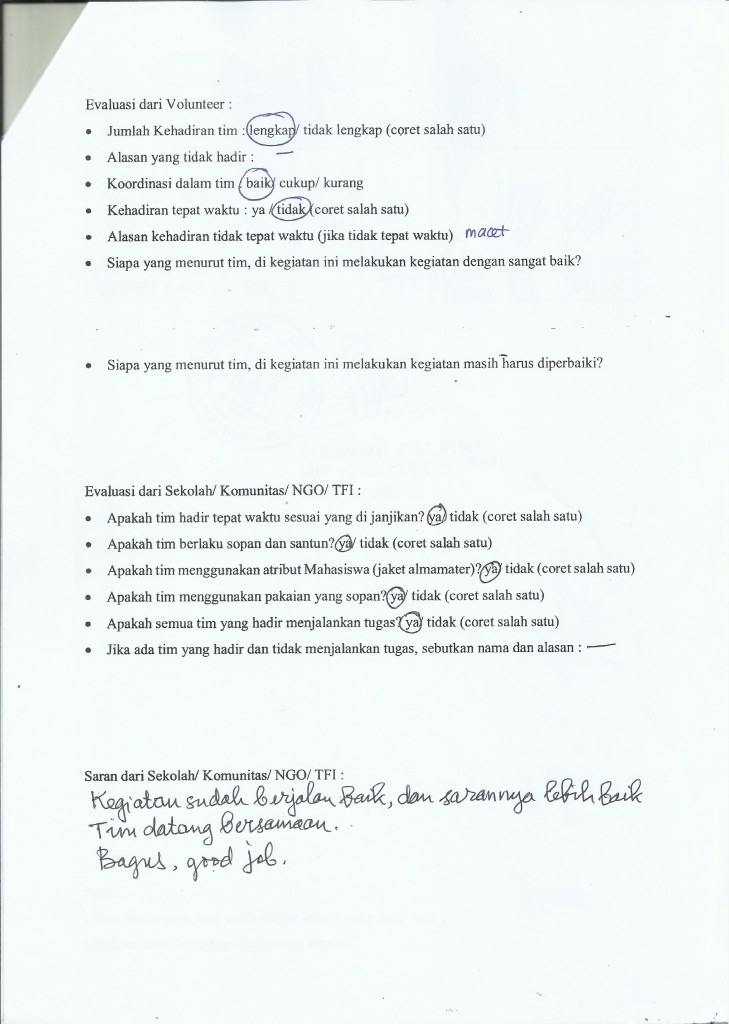 Evaluasi dari Volunteer :
• Jumlah Kehadiran tim : lengkap/ tidak lengkap (coret salah satu)
• Alasan yang tidak hadir : —
• Koordinasi dalam tim : baik/ cukup/ kurang
• Kehadiran tepat waktu : ya / tidak (coret salah satu)
• Alasan kehadiran tidak tepat waktu (jika tidak tepat waktu) macet
• Siapa yang menurut tim, di kegiatan ini melakukan kegiatan dengan sangat baik?
• Siapa yang menurut tim, di kegiatan ini melakukan kegiatan masih harus diperbaiki?
Evaluasi dari Sekolah/ Komunitas/ NGO/ TFI :
• Apakah tim hadir tepat waktu sesuai yang di janjikan? ya/ tidak (coret salah satu)
• Apakah tim berlaku sopan dan santun? ya/ tidak (coret salah satu)
• Apakah tim menggunakan atribut Mahasiswa (jaket almamater)? ya/ tidak (coret salah satu)
• Apakah tim menggunakan pakaian yang sopan? ya/ tidak (coret salah satu)
• Apakah semua tim yang hadir menjalankan tugas? ya/ tidak (coret salah satu)
• Jika ada tim yang hadir dan tidak menjalankan tugas, sebutkan nama dan alasan : —
Saran dari Sekolah/ Komunitas/ NGO/ TFI :
Kegiatan sudah berjalan Baik, dan sarannya lebih Baik
Tim datang Bersamaan.
Bagus, good job.